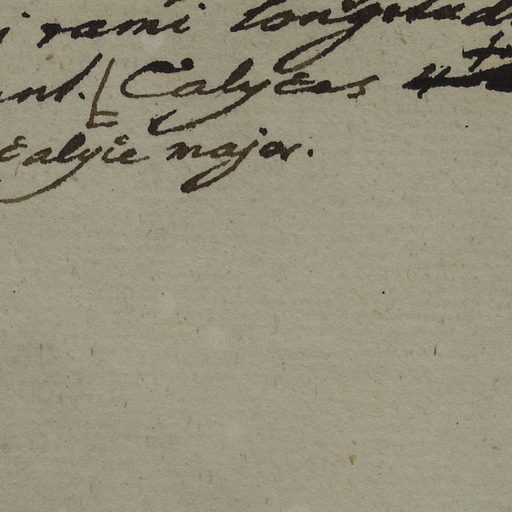 i rami longitud
ant. Calyces 4
calyce major.